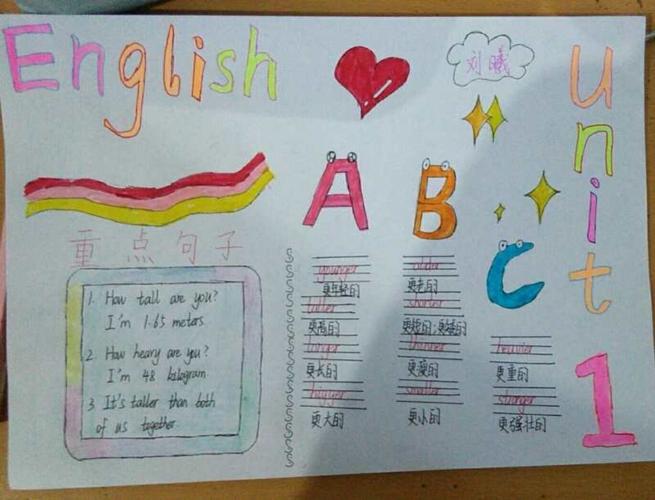 English
刘曦
Unit 1
A
B
C
重点句子
1. How tall are you?
I'm 1.65 meters
2. How heavy are you?
I'm 48 kilogram
3 It's taller than both
of us together
younger
更年轻的
taller
更高的
longer
更长的
更大的
older
更老的
shorter
更矮的;更矮的
thinner
更瘦的
smaller
更小的
heavier
更重的
stronger
更强壮的